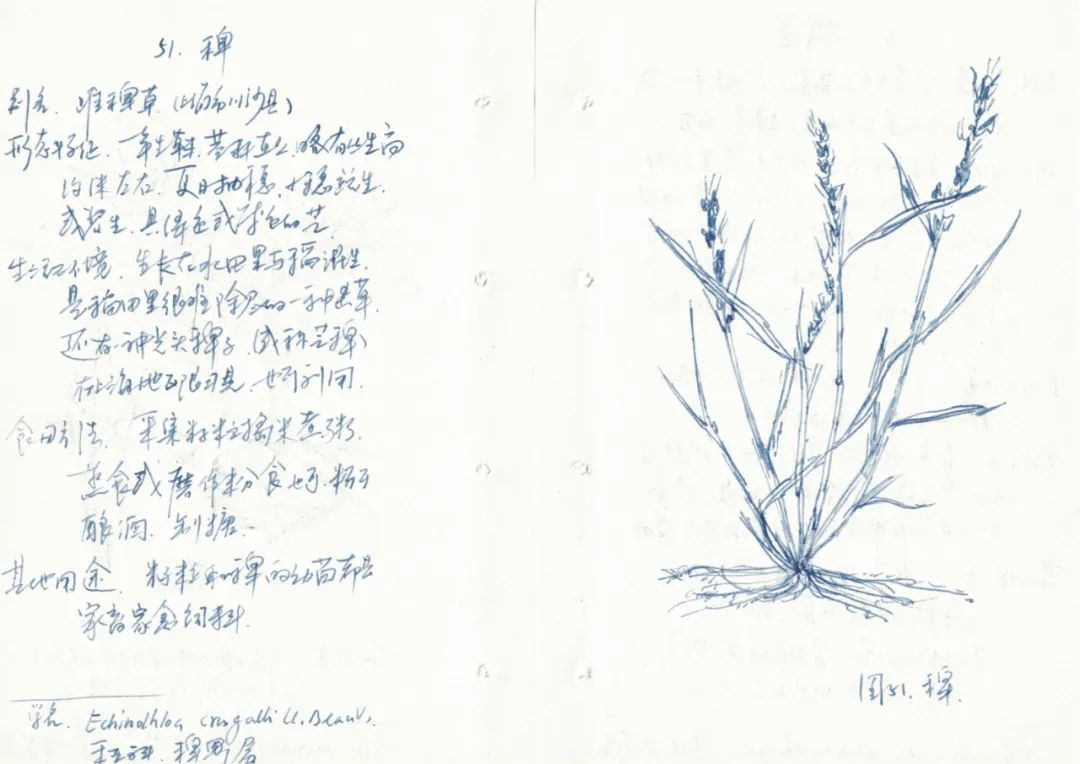 51. 稗
别名. 稗草 (上海川沙县)
形态特征. 一年生草本. 茎秆直立. 略有丛生高
约1米左右. 夏日抽穗. 小穗
或紫色的芒.
生长环境. 生长在水田里与稻混生.
是稻田里很难除尽的一种杂草.
还有一种光头稗子 (或称芒稗)
在上海地区常见. 也可利用.
食用方法. 采集籽粒捣米煮粥.
蒸食或磨作粉食也可. 籽可
酿酒. 制糖.
其他用途. 籽粒和稗的幼苗都是
家畜家禽饲料.
学名. Echinochloa crusgalli (L. Beauv.
禾本科. 稗属
图51. 稗.